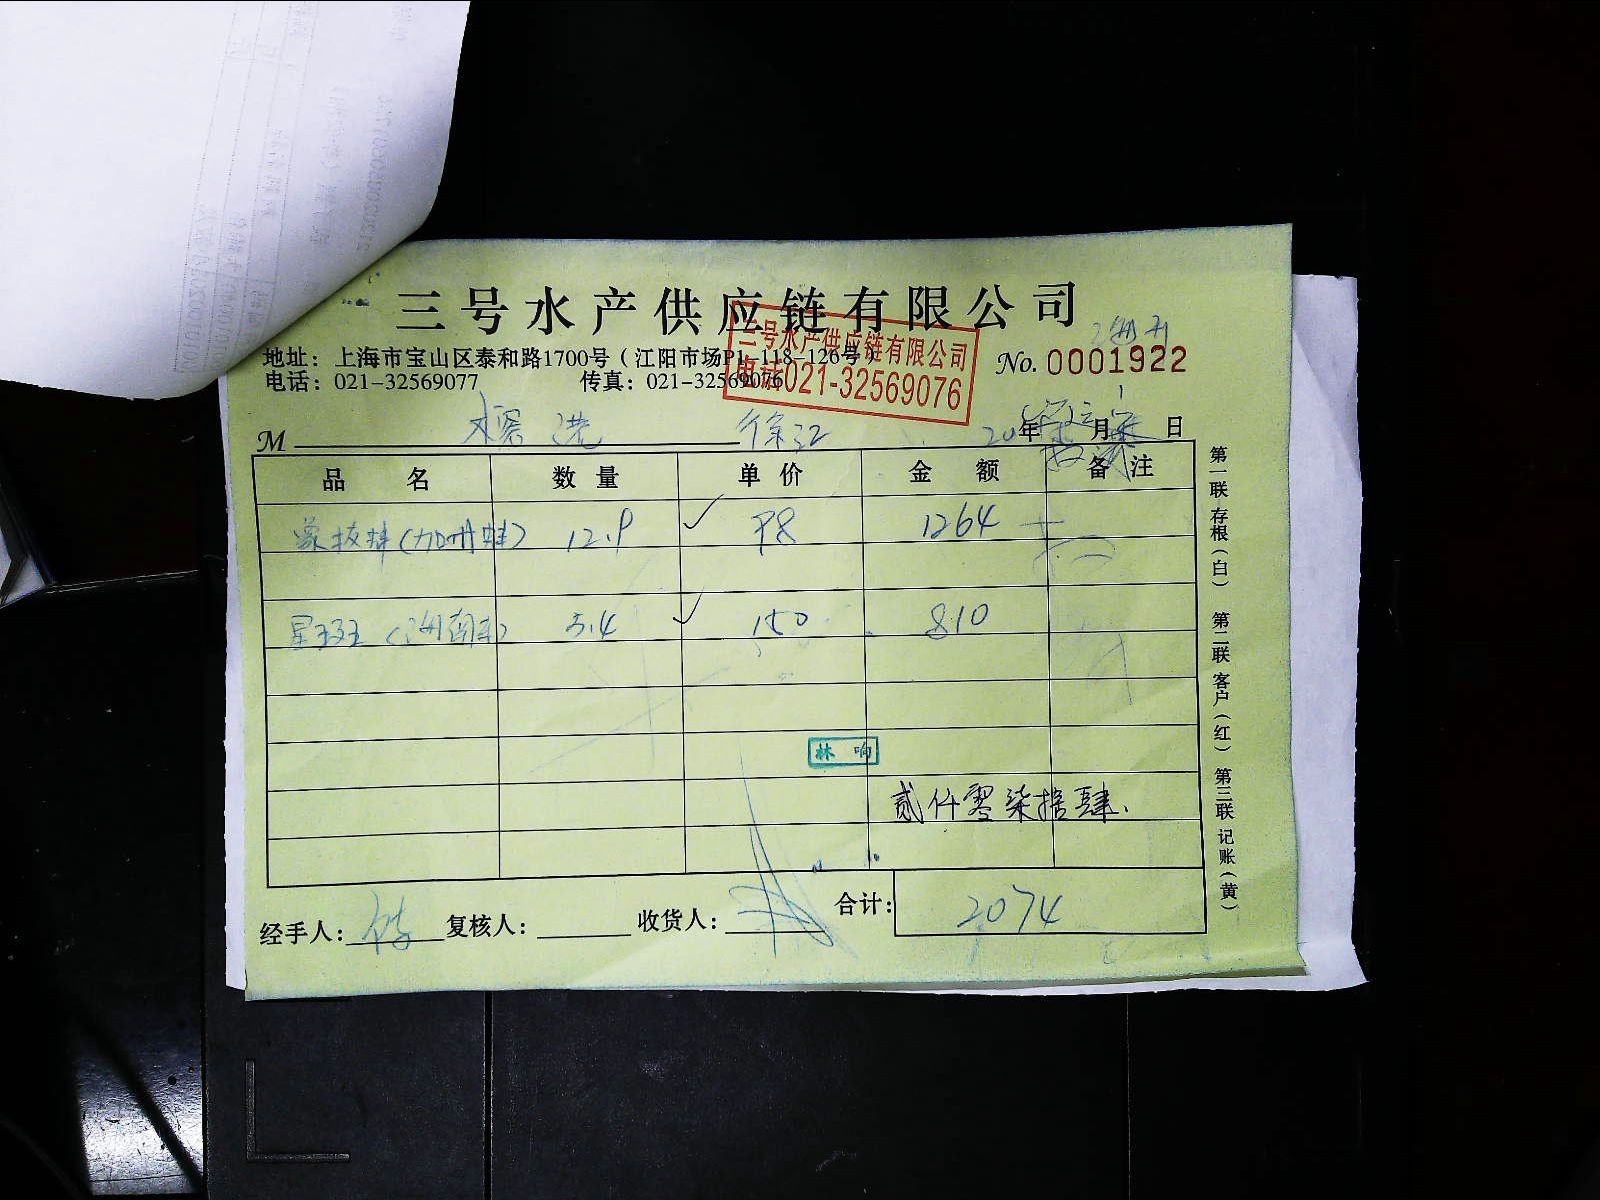 三号水产供应链有限公司
地址：上海市宝山区泰和路1700号（江阳市场P1-118-126号）
No. 0001922
电话：021-32569077 传真：021-32569076
三号水产供应链有限公司
电话021-32569076
M 港 徐汇 20 年 月 日
品 名 数 量 单 价 金 额 备 注
12.9 98 1264
星斑 5.4 150 810
林 响
贰仟零柒拾肆.
经手人： 复核人： 收货人： 合计： 2074
第一联 存根（白） 第二联 客户（红） 第三联 记账（黄）